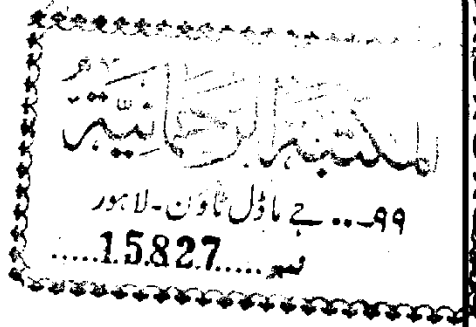 المكتبة الرحمانية
۹۹... جے ماڈل ٹاؤن - لاہور
نمبر.....15827.....